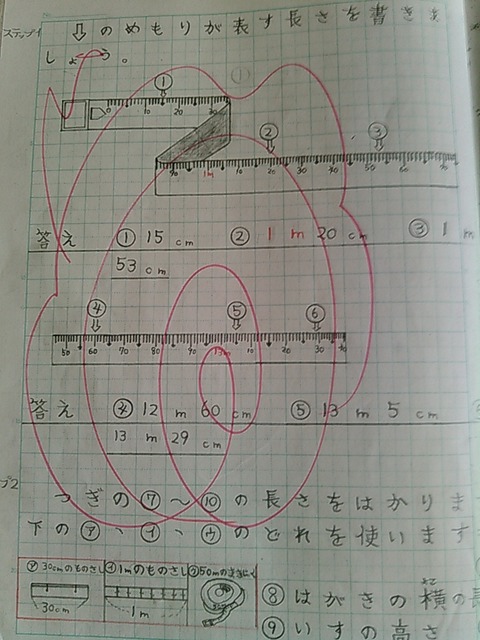 ステップ1
⇩のめもりが表す長さを書きま
しょう。
①
0 10 20 30
② ③
90 1m 10 20 30 40 50 60 70 80
答え ① 15cm ② 1m20cm ③ 1m
53cm
④ ⑤ ⑥
50 60 70 80 90 13m 10 20 30 40
答え ④ 12m60cm ⑤ 13m5cm
13m29cm
プ2
つぎの⑦〜⑩の長さをはかりま
下の㋐、㋑、㋒のどれを使います
㋐30cmのものさし ㋑1mのものさし ㋒50mのまきじゃく
30cm 1m
⑧はがきの横の長
よこ
⑨いすの高さ